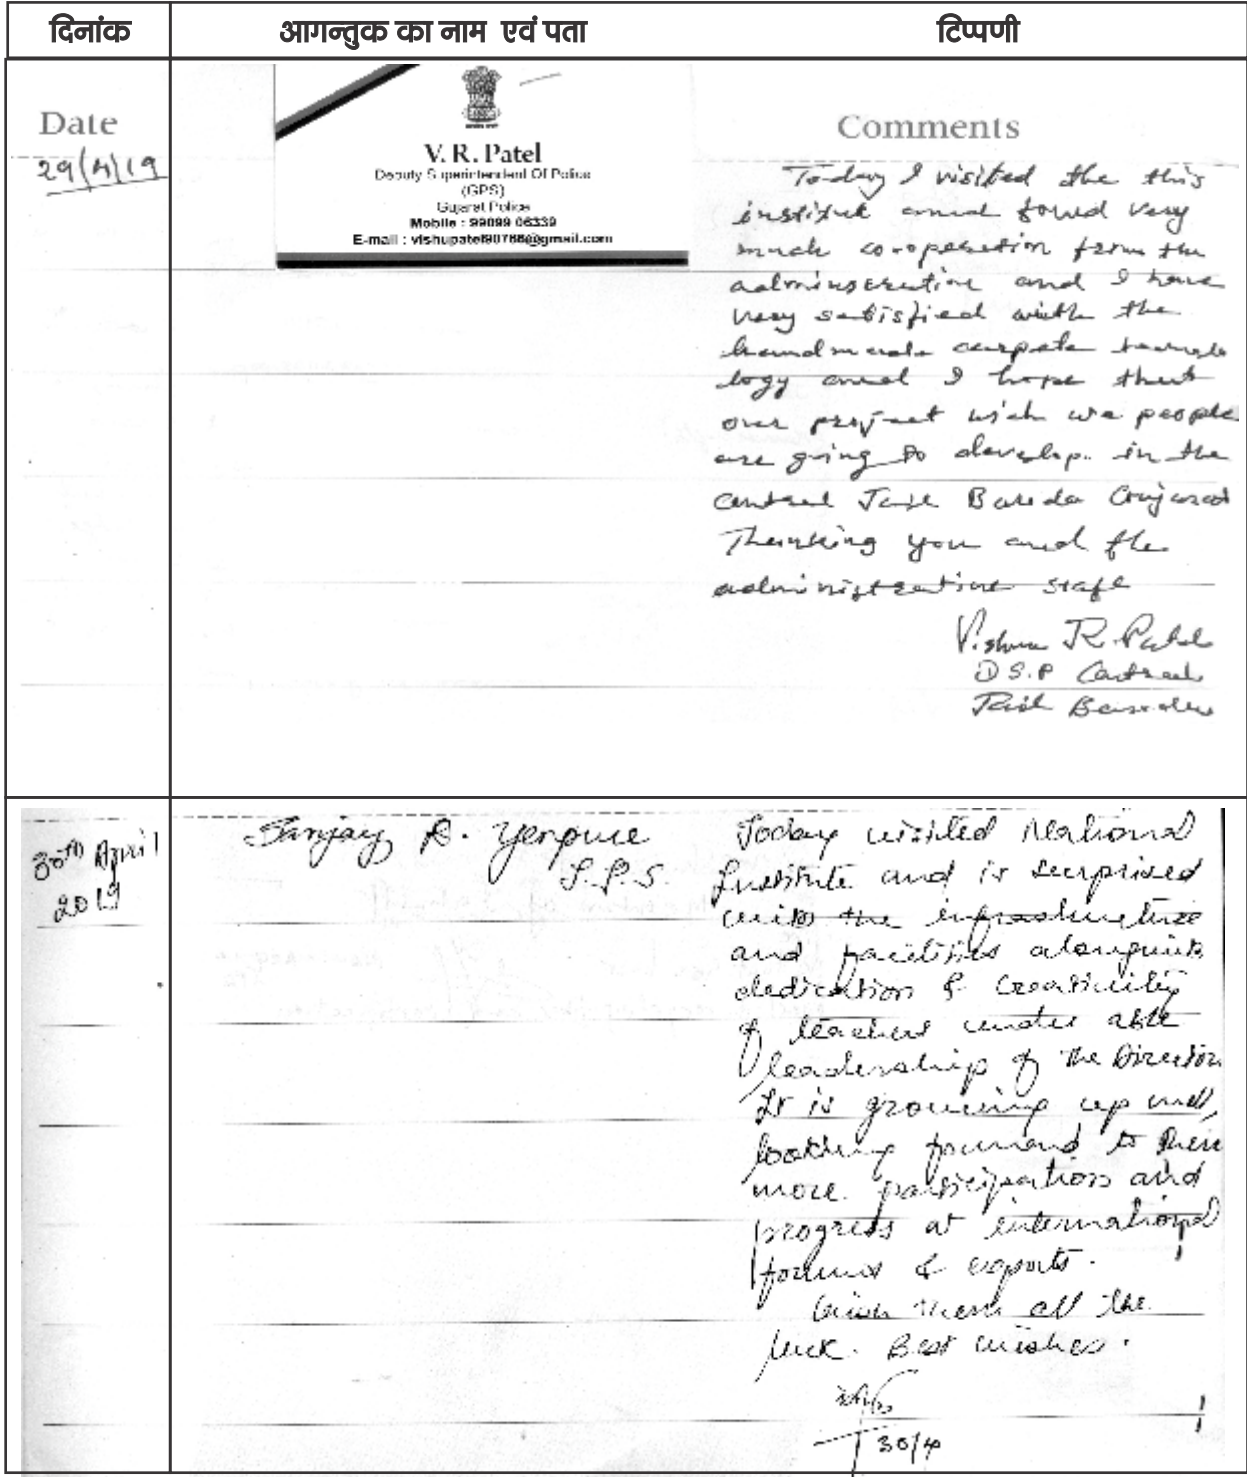 दिनांक आगन्तुक का नाम एवं पता टिप्पणी
Date
29/4/19
V. R. Patel
Deputy Superintendent Of Police
(GPS)
Gujarat Police
Mobile : 99099 06339
E-mail : vishupatel90766@gmail.com
Comments
Today I visited the this
institut and found very
much co-operation from the
and I have
very satisfied with the
handmade carpate
logy and I hope that
our project wich we people
are going to develop. in the
central Jail Baroda Gujarat
Thanking you and the
administrative staff
Vishnu R. Patel
D S.P Central
Jail Baroda
30th April
2019
Sanjay D. Yenpure
I.P.S.
Today visited National
Institute and is surprised
with the infrastructure
and facilities alongwith
dedication & creativity
of teachers under able
leadership of the Director.
It is growing up well,
looking forward to
more participation and
progress at international
forums & exports.
Wish them all the
luck. Best wishes.
30/4